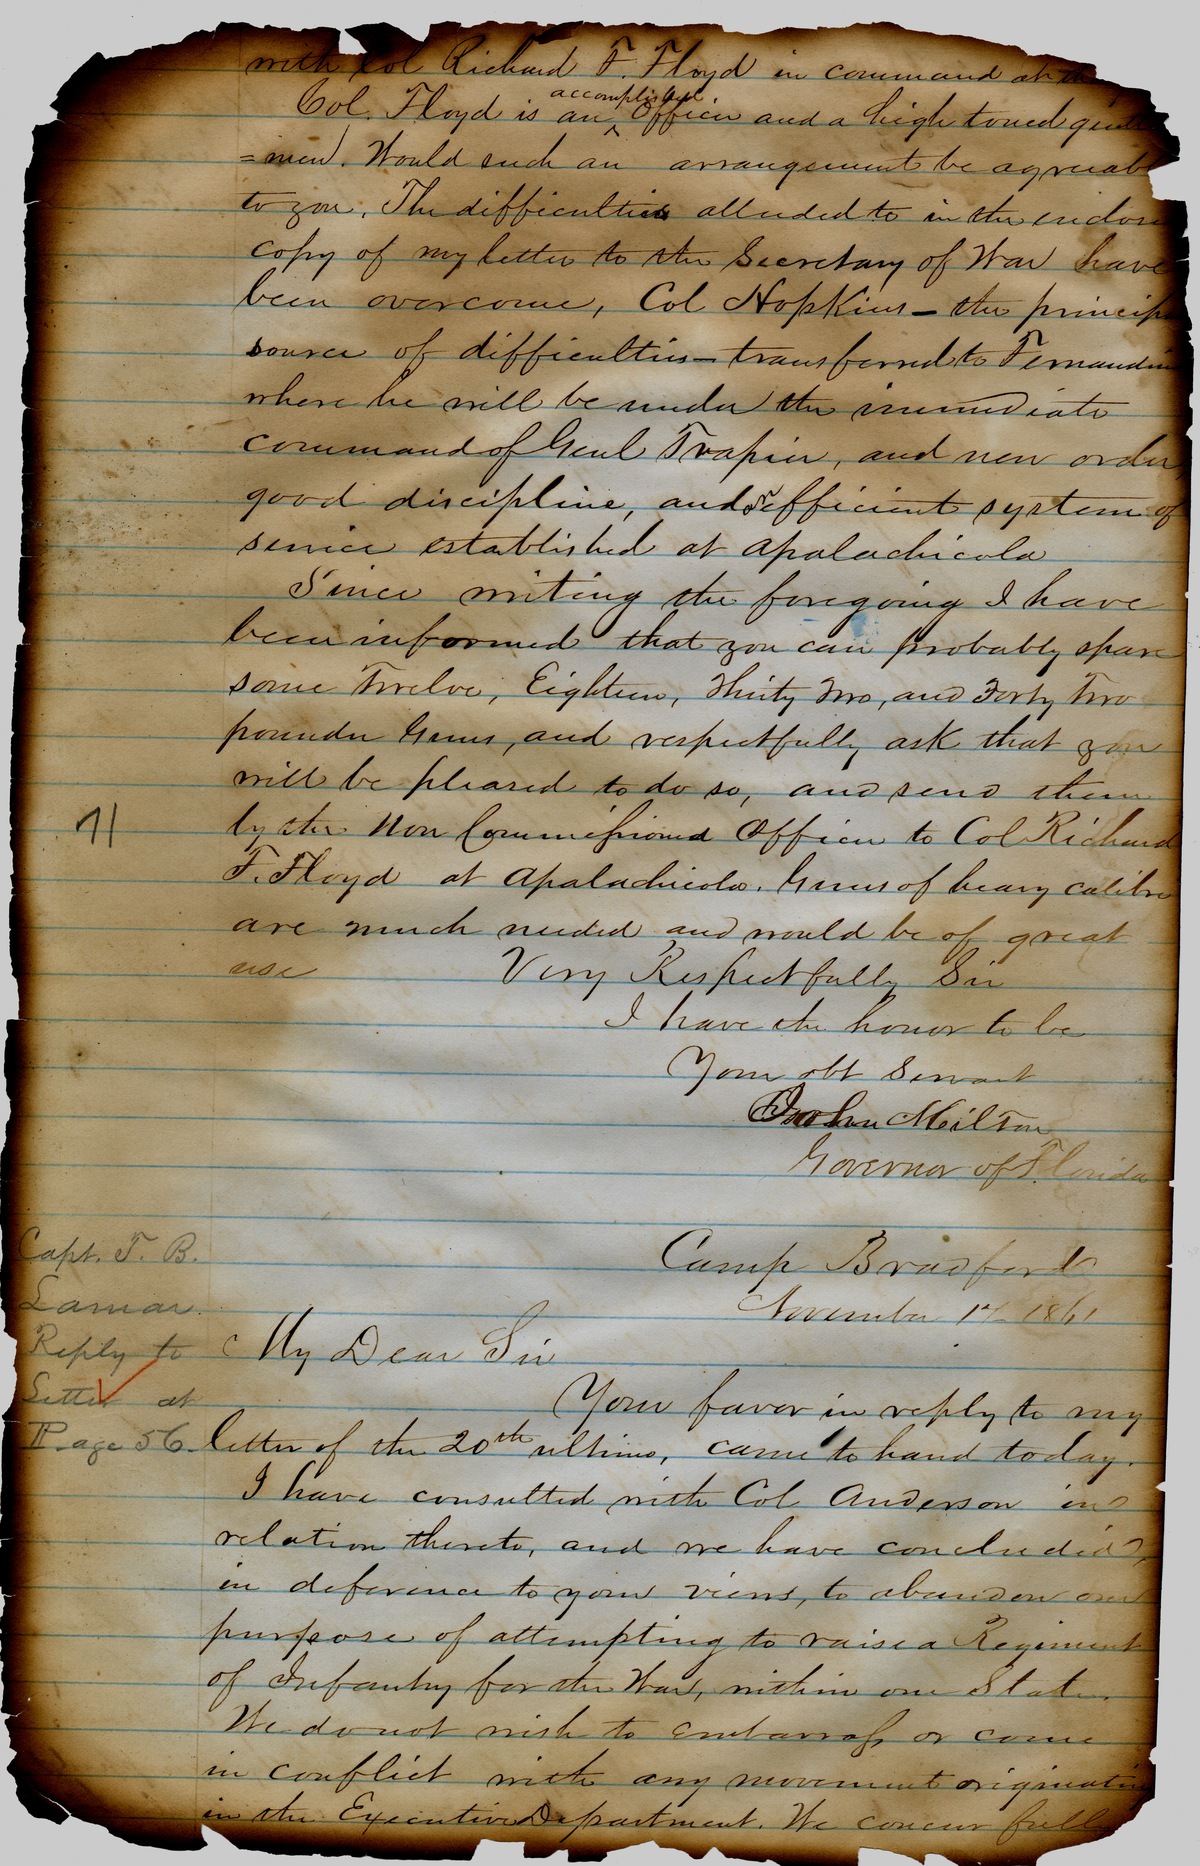 with Col Richard F. Floyd in command at the
accomplished
Col. Floyd is an ^ Officer and a high toned gentle
=men. Would such an arrangement be agreeab
to you. The difficulties alluded to in the enclose
copy of my letter to the Secretary of War have
been overcome, Col Hopkins – the princip
source of difficulties – transferred to Fernandin
where he will be under the immediate
command of Genl Trapier, and new order,
good discipline, and an efficient system of
service established at Apalachicola
Since writing the foregoing I have
been informed that you can probably spare
some Twelve, Eighteen, Thirty Two, and Forty Two
pounder Guns, and respectfully ask that you
will be pleased to do so, and send them
71
by the Non Commissioned Officer to Col Richard
F. Floyd at Apalachicola. Guns of heavy calibre
are much needed and would be of great
use Very Respectfully Sir
I have the honor to be
Your obt Servant
John Milton
Governor of Florida
Camp Bradford
November 17 1861
Capt. T. B.
Lamar
Reply to
Letter at
Page 56
My Dear Sir
Your favor in reply to my
letter of the 20th ultimo, came to hand today.
I have consulted with Col Anderson in
relation thereto, and we have concluded,
in deference to your views, to abandon our
purpose of attempting to raise a Regiment
of Infantry for the War, within our State.
We do not wish to embarrass or come
in conflict with any movement originatin
in the Executive Department. We concur fully